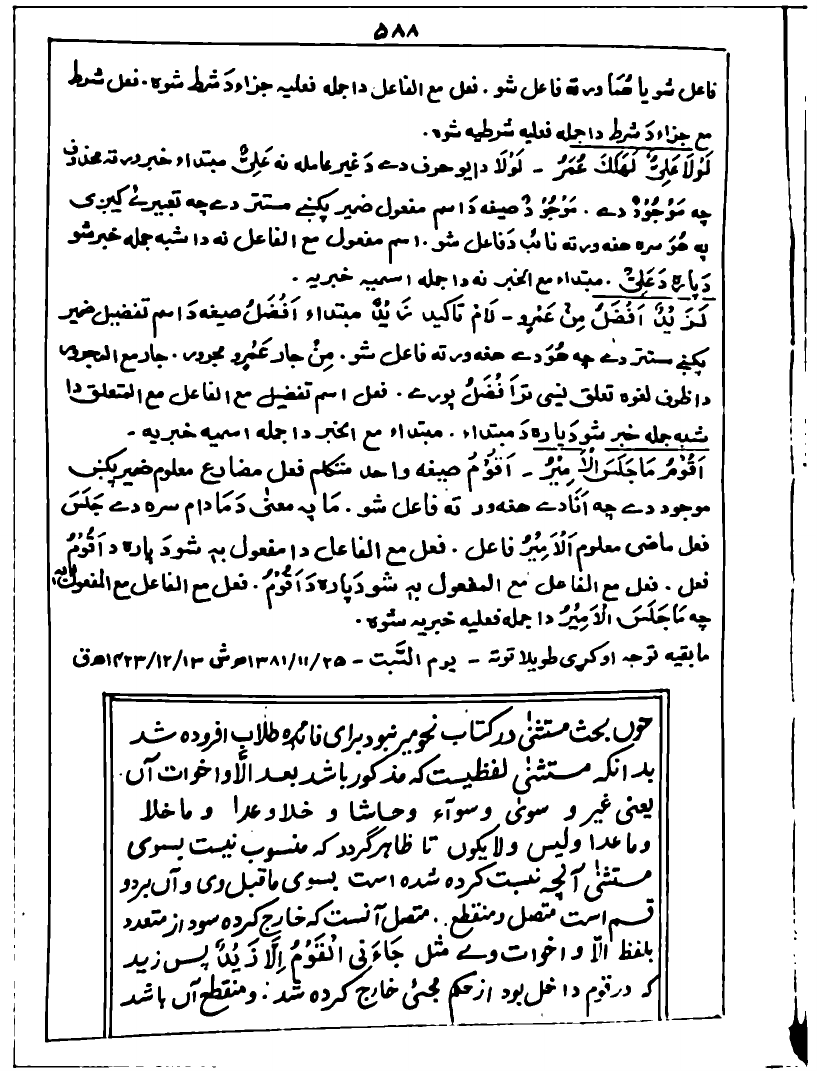 ۵۸۸
فاعل شو یا هُمَا ورته فاعل شو. فعل مع الفاعل دا جمله فعلیه جزاء دَ شرط شوه. فعل شرط
مع جزاء دَ شرط دا جمله فعلیه شرطیه شوه.
لَوْلَا عَلِیٌّ لَهَلَكَ عُمَرُ - لَوْلَا دا یو حرف دے دَ غیر عامله نه عَلِیٌّ مبتداء خبر ورته محذوف
چه مَوْجُوْدٌ دے. مَوْجُوْدٌ صیغه دَ اسم مفعول ضمیر پکښے مستتر دے چه تعبیر ئے کیږی
په هُوَ سره هغه ورته نائب دَ فاعل شو. اسم مفعول مع الفاعل نه دا شبه جمله خبر شو
دَ پاره دَ عَلِیٌّ. مبتداء مع الخبر نه دا جمله اسمیه خبریه.
لَزَیْدٌ اَفْضَلُ مِنْ عَمْرٍو - لام تاکید زَیْدٌ مبتداء اَفْضَلُ صیغه دَ اسم تفضیل ضمیر
پکښے مستتر دے چه هُوَ دے هغه ورته فاعل شو. مِنْ جار عَمْرٍو مجرور. جار مع المجرور
دا ظرف لغوه تعلق نیسی تر اَفْضَلُ پورے. فعل اسم تفضیل مع الفاعل مع المتعلق دا
شبه جمله خبر شو دَ پاره دَ مبتداء. مبتداء مع الخبر دا جمله اسمیه خبریه -
اَقُوْمُ مَا جَلَسَ الْاَمِیْرُ - اَقُوْمُ صیغه واحد متکلم فعل مضارع معلوم ضمیر پکښے
موجود دے چه اَنَا دے هغه ور ته فاعل شو. مَا په معنیٰ دَ مَا دام سره دے جَلَسَ
فعل ماضی معلوم اَلْاَمِیْرُ فاعل. فعل مع الفاعل دا مفعول بہٖ شو دَ پاره دَ اَقُوْمُ
فعل. فعل مع الفاعل مع المفعول بہٖ شو دَ پاره دَ اَقُوْمُ. فعل مع الفاعل مع المفعول بہٖ
چه مَا جَلَسَ الْاَمِیْرُ دا جمله فعلیه خبریه شوه.
مابقیه توجه اوکړی طویلا توته - یوم السَّبت - ۱۳۸۱/۱۱/۲۵ه‍ ش ۱۴۲۳/۱۲/۱۳ه‍ ق
چون بحث مستثنیٰ در کتاب نحومیر نبود برای فائده طلاب افزوده شد
بدانکه مستثنیٰ لفظیست که مذکور باشد بعد اِلّا و اخوات آں
یعنی غیر و سویٰ و سوآء و حاشا و خلا و عدا و ماخلا
و ماعدا و لیس و لایکون تا ظاهر گردد که منسوب نیست بسوی
مستثنیٰ آنچه نسبت کرده شده است بسوی ماقبل وی و آں بر دو
قسم است متصل و منقطع. متصل آنست که خارج کرده سود از متعدد
بلفظ الّا و اخوات وے مثل جَاءَنِی الْقَوْمُ اِلَّا زَیْدًا پس زید
که در قوم داخل بود از حکم مجئی خارج کرده شد: و منقطع آں باشد